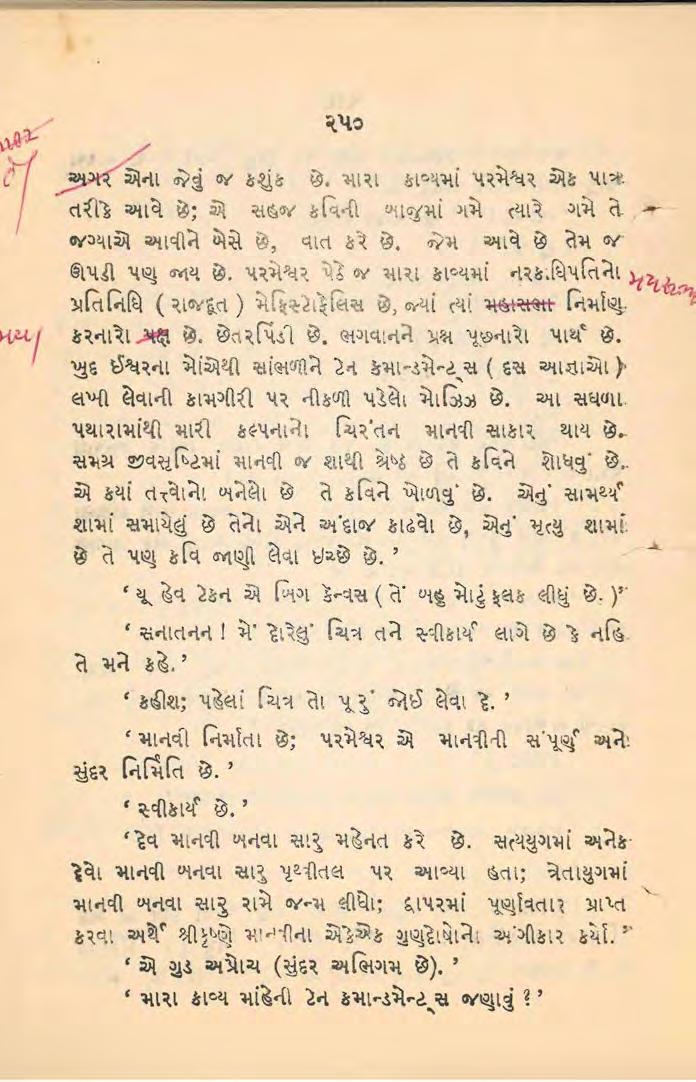 ૨૫૦
અગર એના જેવું જ કશુંક છે. મારા કાવ્યમાં પરમેશ્વર એક પાત્ર
તરીકે આવે છે; એ સહજ કવિની બાજુમાં ગમે ત્યારે ગમે તે
જગ્યાએ આવીને બેસે છે, વાત કરે છે. જેમ આવે છે તેમ જ
ઊપડી પણ જાય છે. પરમેશ્વર પેઠે જ મારા કાવ્યમાં નરકાધિપતિનો
પ્રતિનિધિ ( રાજદૂત ) મેફિસ્ટોફેલિસ છે, જ્યાં ત્યાં મહાસભા નિર્માણ
કરનારો પ્રશ્ન છે. છેતરપિંડી છે. ભગવાનને પ્રશ્ન પૂછનારો પાર્થ છે.
ખુદ ઈશ્વરના મોંએથી સાંભળીને ટેન કમાન્ડમેન્ટ્સ ( દસ આજ્ઞાઓ )
લખી લેવાની કામગીરી પર નીકળી પડેલો મોઝિઝ છે. આ સઘળા
પથારામાંથી મારી કલ્પનાનો ચિરંતન માનવી સાકાર થાય છે.
સમગ્ર જીવસૃષ્ટિમાં માનવી જ શાથી શ્રેષ્ઠ છે તે કવિને શોધવું છે.
એ કયાં તત્ત્વોનો બનેલો છે તે કવિને ખોળવું છે. એનું સામર્થ્ય
શામાં સમાયેલું છે તેનો એને અંદાજ કાઢવો છે, એનું મૃત્યુ શામાં
છે તે પણ કવિ જાણી લેવા ઇચ્છે છે. ’
‘ યૂ હેવ ટેકન એ બિગ કૅન્વસ ( તેં બહુ મોટું ફલક લીધું છે. )’
‘ સનાતનન ! મેં દોરેલું ચિત્ર તને સ્વીકાર્ય લાગે છે કે નહિ
તે મને કહે.’
‘ કહીશ; પહેલાં ચિત્ર તો પૂરું જોઈ લેવા દે. ’
‘ માનવી નિર્માતા છે; પરમેશ્વર એ માનવીની સંપૂર્ણ અને
સુંદર નિર્મિતિ છે. ’
‘ સ્વીકાર્ય છે. ’
‘ દેવ માનવી બનવા સારુ મહેનત કરે છે. સત્યયુગમાં અનેક
દેવો માનવી બનવા સારુ પૃથ્વીતલ પર આવ્યા હતા; ત્રેતાયુગમાં
માનવી બનવા સારુ રામે જન્મ લીધો; દ્વાપરમાં પૂર્ણાવતાર પ્રાપ્ત
કરવા અર્થે શ્રીકૃષ્ણે માનવીના એકેએક ગુણદોષોનો અંગીકાર કર્યો. ’
‘ એ ગુડ અપ્રોચ (સુંદર અભિગમ છે). ’
‘ મારા કાવ્ય માંહેની ટેન કમાન્ડમેન્ટ્સ જણાવું ? ’